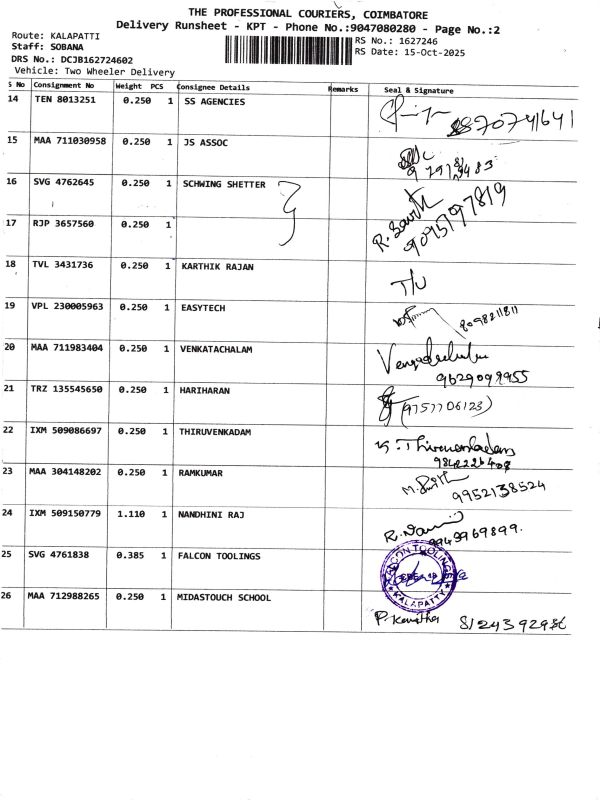 THE PROFESSIONAL COURIERS, COIMBATORE
Delivery Runsheet - KPT - Phone No.:9047080280 - Page No.:2
Route: KALAPATTI
Staff: SOBANA
DRS No.: DCJB162724602
Vehicle: Two Wheeler Delivery
RS No.: 1627246
RS Date: 15-Oct-2025
S No Consignment No Weight PCS Consignee Details Remarks Seal & Signature
14 TEN 8013251 0.250 1 SS AGENCIES
15 MAA 711030958 0.250 1 JS ASSOC
16 SVG 4762645 0.250 1 SCHWING SHETTER
17 RJP 3657560 0.250 1
9095197819
18 TVL 3431736 0.250 1 KARTHIK RAJAN
19 VPL 230005963 0.250 1 EASYTECH 8098211811
20 MAA 711983404 0.250 1 VENKATACHALAM
21 TRZ 135545650 0.250 1 HARIHARAN (9757706123)
22 IXM 509086697 0.250 1 THIRUVENKADAM
23 MAA 304148202 0.250 1 RAMKUMAR 9952138524
24 IXM 509150779 1.110 1 NANDHINI RAJ
9943969899.
25 SVG 4761838 0.385 1 FALCON TOOLINGS FALCON TOOLINGS KALAPATTY
26 MAA 712988265 0.250 1 MIDASTOUCH SCHOOL P. Kavitha